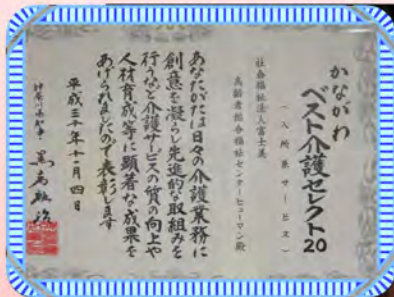 かながわ
ベスト介護セレクト20
（入所系サービス）
社会福祉法人富士美
高齢者総合福祉センターヒューマン殿
あなたがたは日々の介護業務に
創意を凝らし先進的な取組みを
行うなど介護サービスの質の向上や
人材育成等に顕著な成果を
あげられましたので表彰します
平成三十年十一月四日
神奈川県知事 黒岩祐治